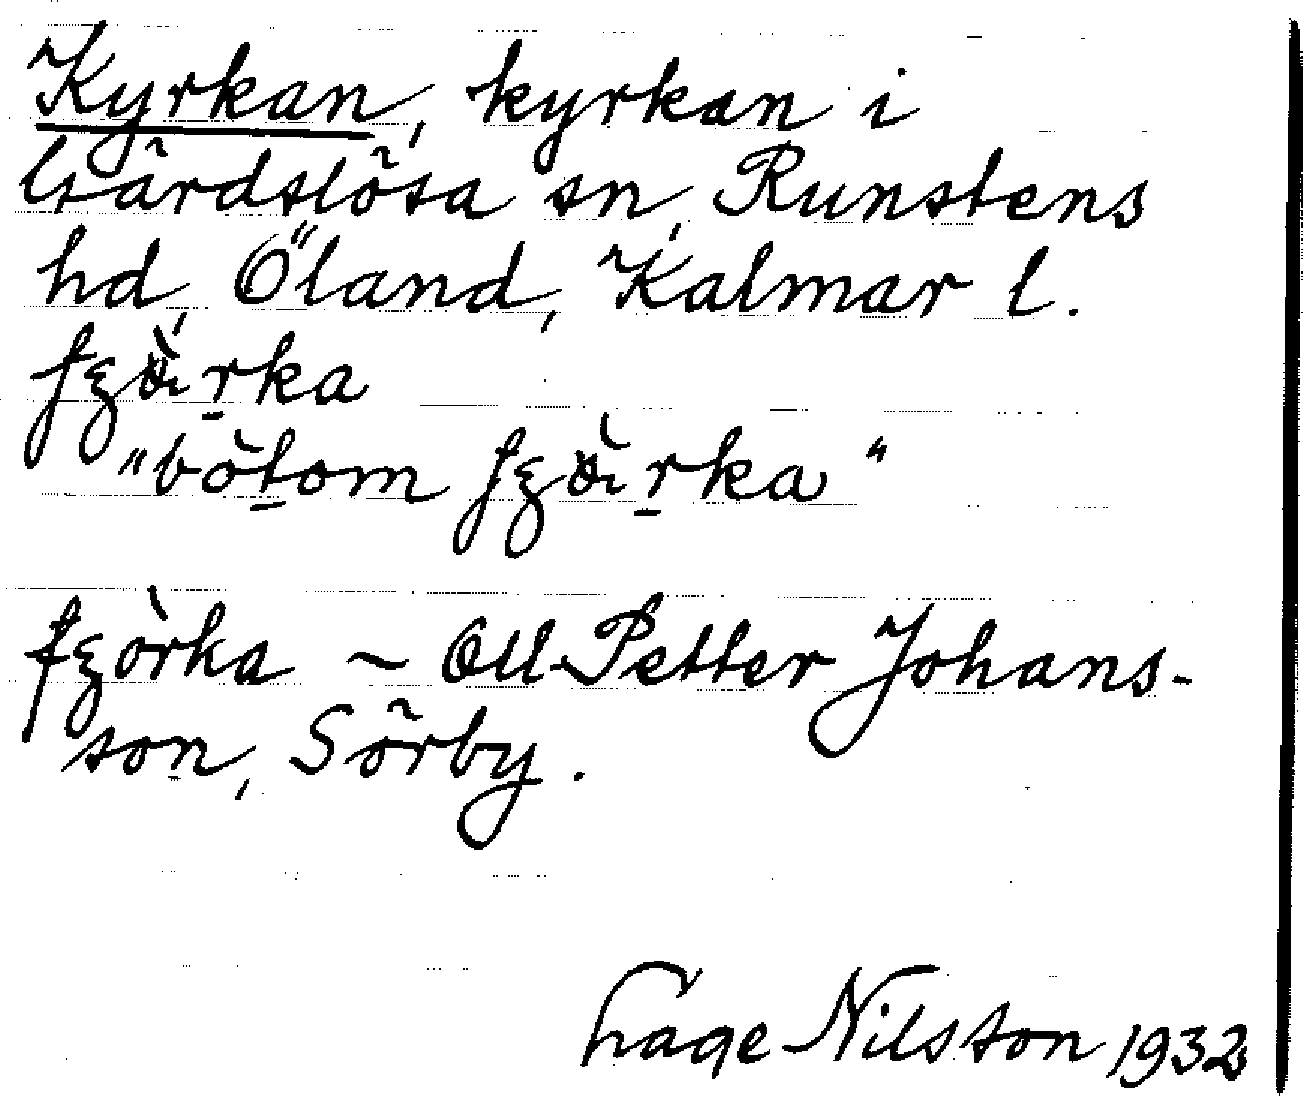 Kyrkan, kyrkan i
Gärdslösa sn, Runstens
hd, Öland, Kalmar l.

"bòtom
Oll-Petter Johans-
son, Sörby.
Hage Nilsson 1932